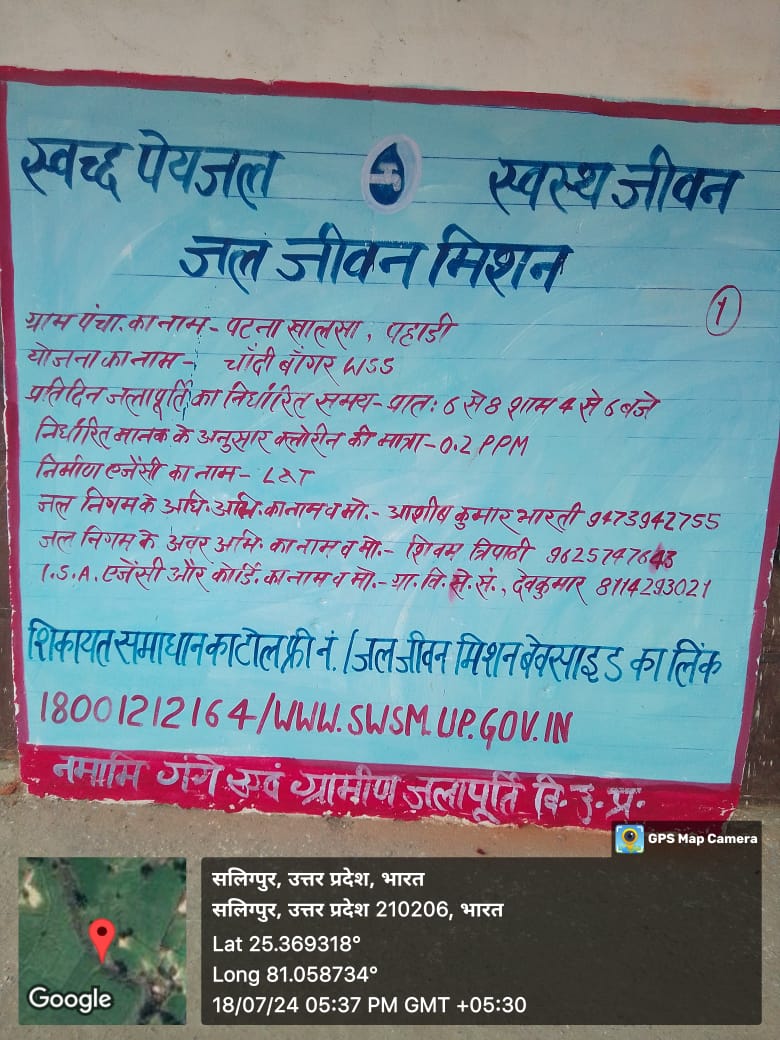 स्वच्छ पेयजल स्वस्थ जीवन
जल जीवन मिशन
1
ग्राम पंचा. का नाम - पटना खालसा, पहाडी
योजना का नाम - चाँदी बाँगर WSS
प्रतिदिन जलापूर्ति का निर्धारित समय - प्रात: 6 से 8 शाम 4 से 6 बजे
निर्धारित मानक के अनुसार क्लोरीन की मात्रा - 0.2 PPM
निर्माण एजेंसी का नाम - L&T
जल निगम के अधि. अभि. का नाम व मो. - आशीष कुमार भारती 9473942755
जल निगम के अवर अभि. का नाम व मो. - शिवम त्रिपाठी 9625747643
I.S.A. एजेंसी और कोर्डि. का नाम व मो. - ग्रा. वि. से. सं., देवकुमार 8114293021
शिकायत समाधान का टोल फ्री नं. / जल जीवन मिशन बेवसाइड का लिंक
18001212164/WWW.SWSM.UP.GOV.IN
नमामि गंगे एवं ग्रामीण जलापूर्ति वि. उ. प्र.
GPS Map Camera
सलिगपुर, उत्तर प्रदेश, भारत
सलिगपुर, उत्तर प्रदेश 210206, भारत
Lat 25.369318°
Long 81.058734°
18/07/24 05:37 PM GMT +05:30
Google